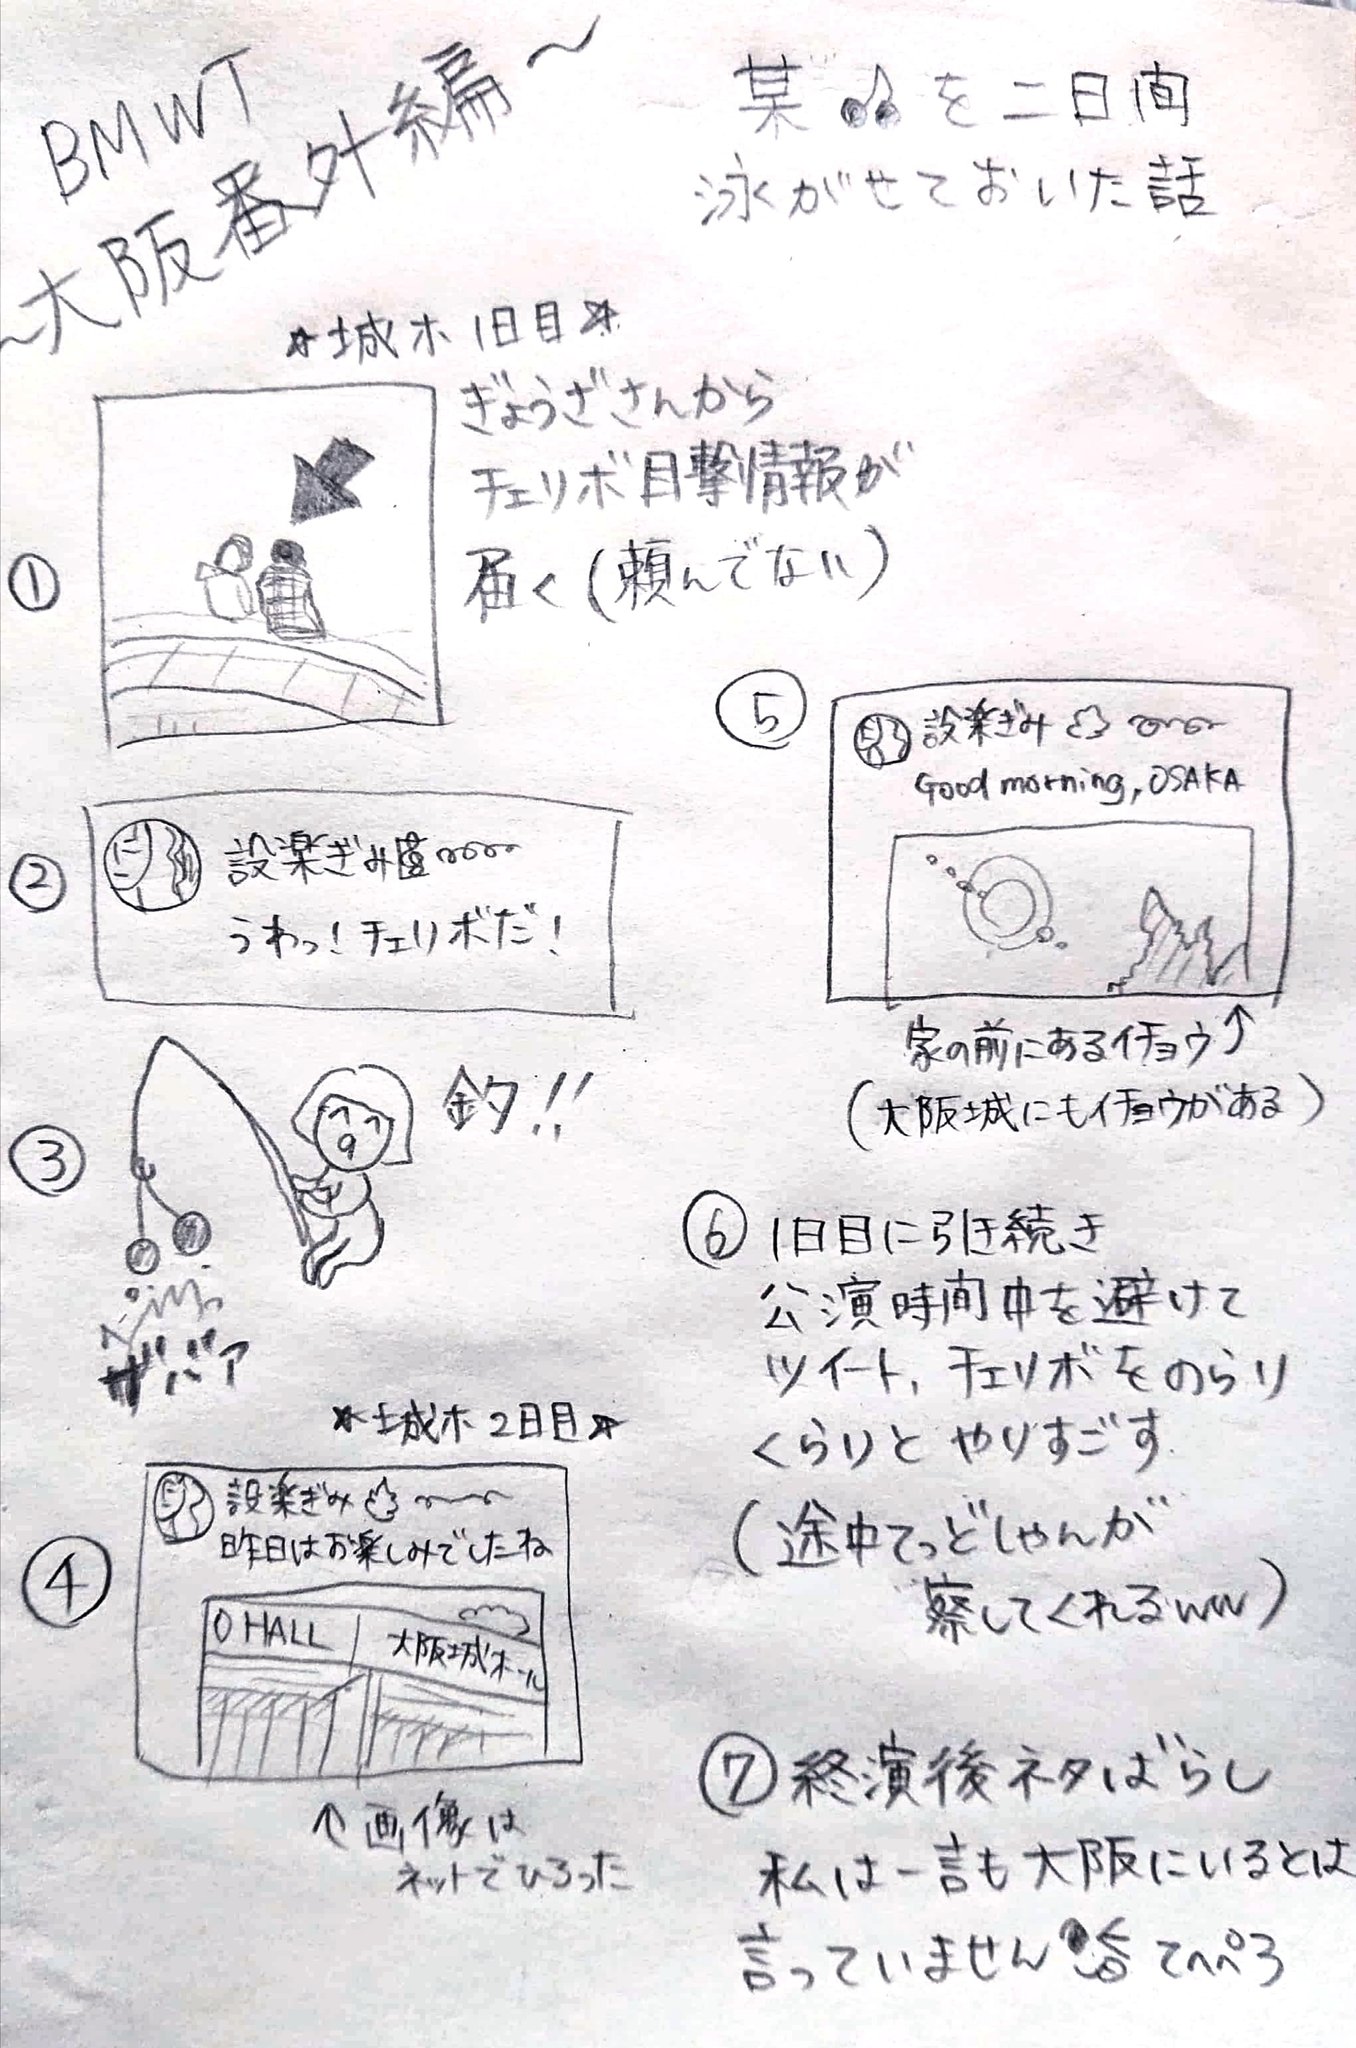 BMWT
～大阪番外編～
某🍒を二日間
泳がせておいた話
★城ホ1日目★
①
ぎょうざさんから
チェリボ目撃情報が
届く(頼んでない)
②
設楽ぎみ
うわっ!チェリボだ!
③
釣!!
ザバァ
★城ホ2日目★
④
設楽ぎみ
昨日はお楽しみでしたね
O HALL
大阪城ホール
↑画像は
ネットでひろった
⑤
設楽ぎみ
Good morning, OSAKA
家の前にあるイチョウ↑
(大阪城にもイチョウがある)
⑥1日目に引き続き
公演時間中を避けて
ツイート,チェリボをのらり
くらりとやりすごす
(途中てっどしゃんが
察してくれるww)
⑦終演後ネタばらし
私は一言も大阪にいるとは
言っていません てへぺろ